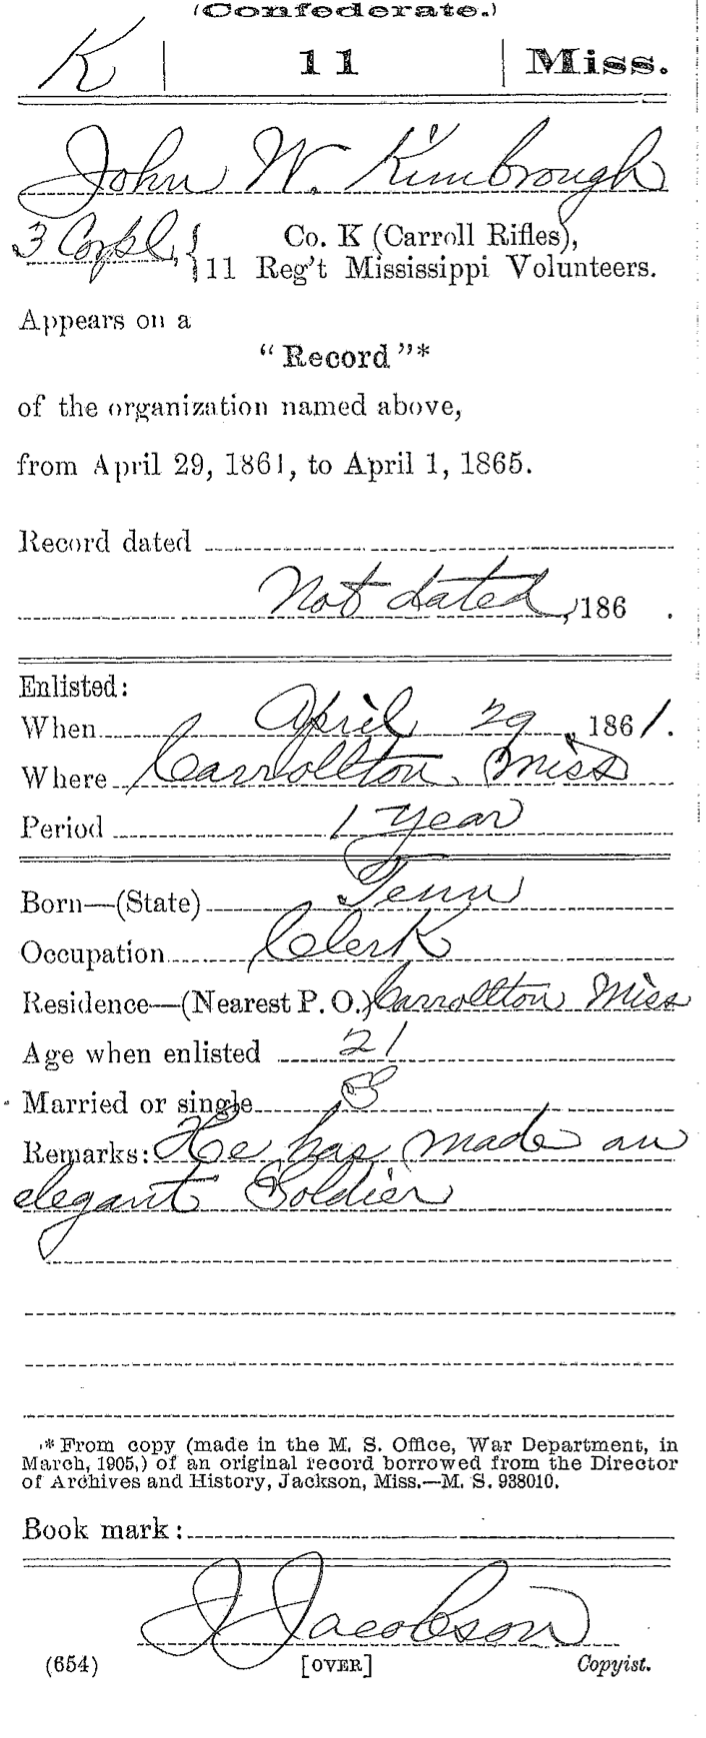 (Confederate.)
K | 11 | Miss.
John W. Kimbrough
3 Corpl, { Co. K (Carroll Rifles),
11 Reg't Mississippi Volunteers.
Appears on a
“Record”*
of the organization named above,
from April 29, 1861, to April 1, 1865.
Record dated
Not dated, 186 .
Enlisted:
When April 29, 1861.
Where Carrollton Miss
Period 1 year
Born—(State) Tenn
Occupation Clerk
Residence—(Nearest P. O.) Carrollton Miss
Age when enlisted 21
Married or single S
Remarks: He has made an
elegant Soldier
* From copy (made in the M. S. Office, War Department, in
March, 1905,) of an original record borrowed from the Director
of Archives and History, Jackson, Miss.—M. S. 938010.
Book mark:
J Jacobson
(654) [OVER] Copyist.